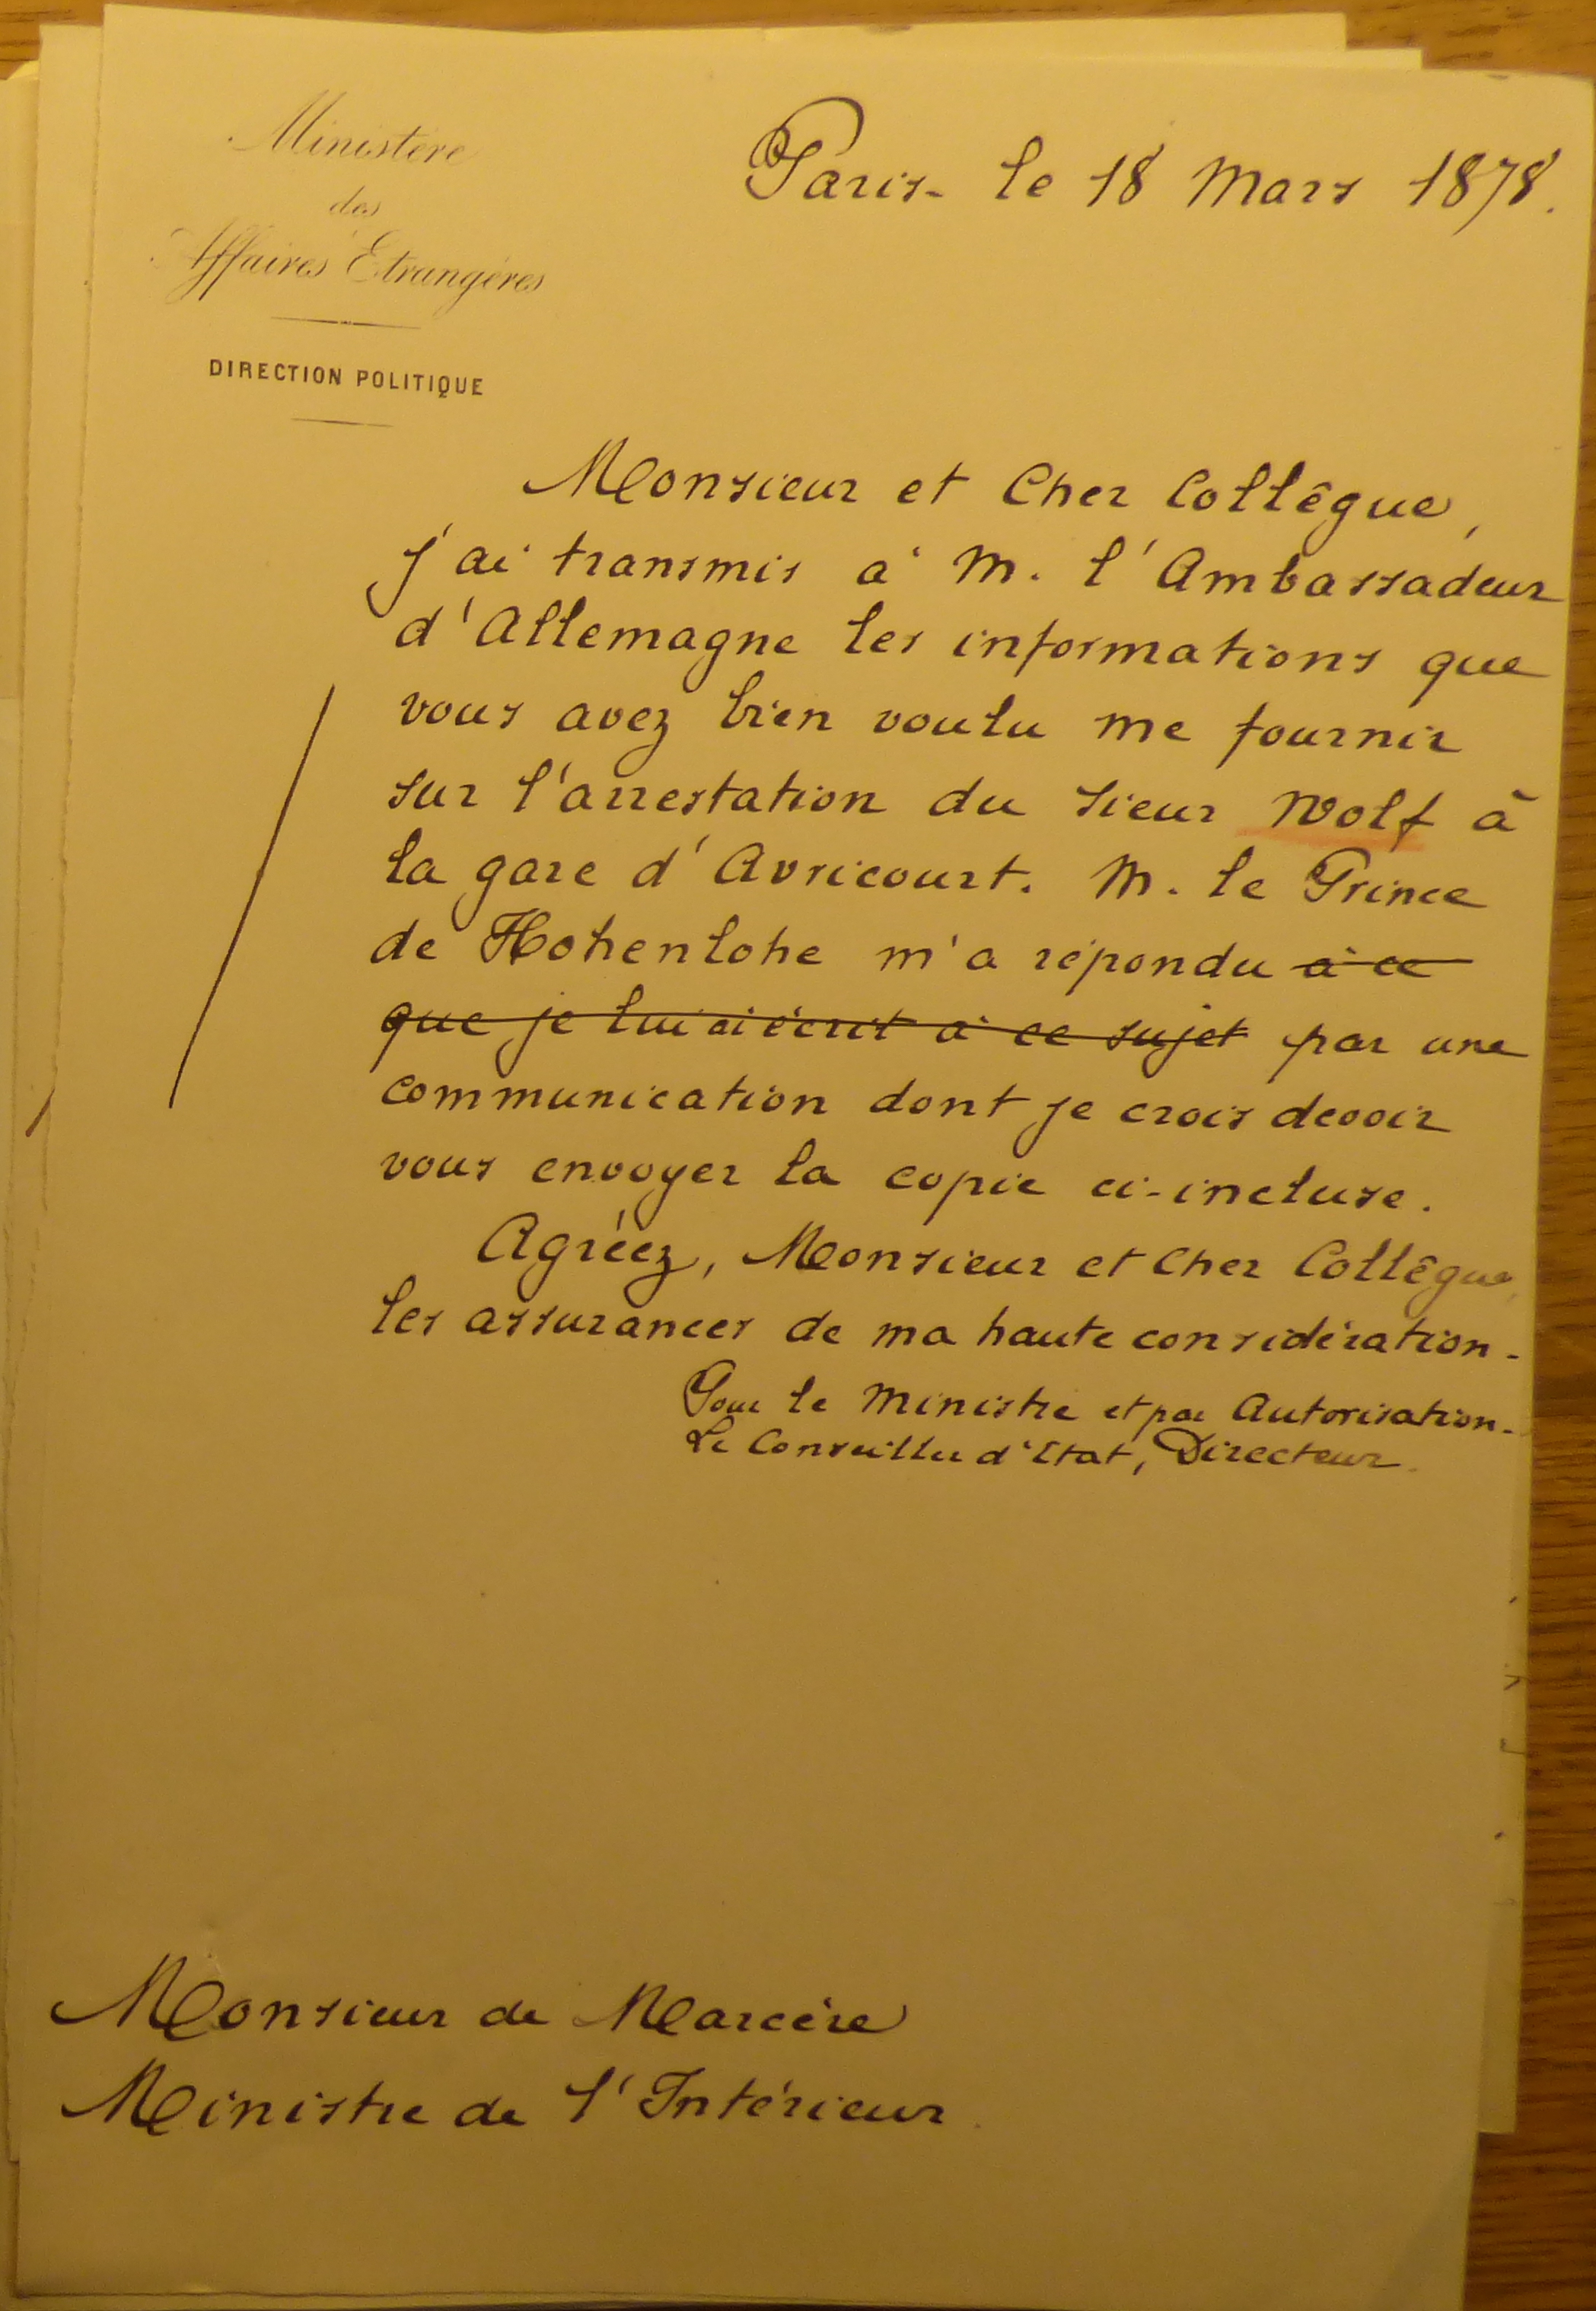 Ministère
des
Affaires Etrangères
DIRECTION POLITIQUE
Paris - le 18 Mars 1878.
Monsieur et Cher Collêgue,
j'ai transmis à M. l'Ambassadeur
d'Allemagne les informations que
vous avez bien voulu me fournir
sur l'arrestation du sieur Wolf à
la gare d'Avricourt. M. le Prince
de Hohenlohe m'a répondu à ce
que je lui ai écrit à ce sujet par une
communication dont je crois devoir
vous envoyer la copie ci-incluse.
Agréez, Monsieur et Cher Collêgue,
les assurances de ma haute considération -
Pour le Ministre et par Autorisation -
Le Conseiller d'Etat, Directeur.
Monsieur de Marcère
Ministre de l'Intérieur